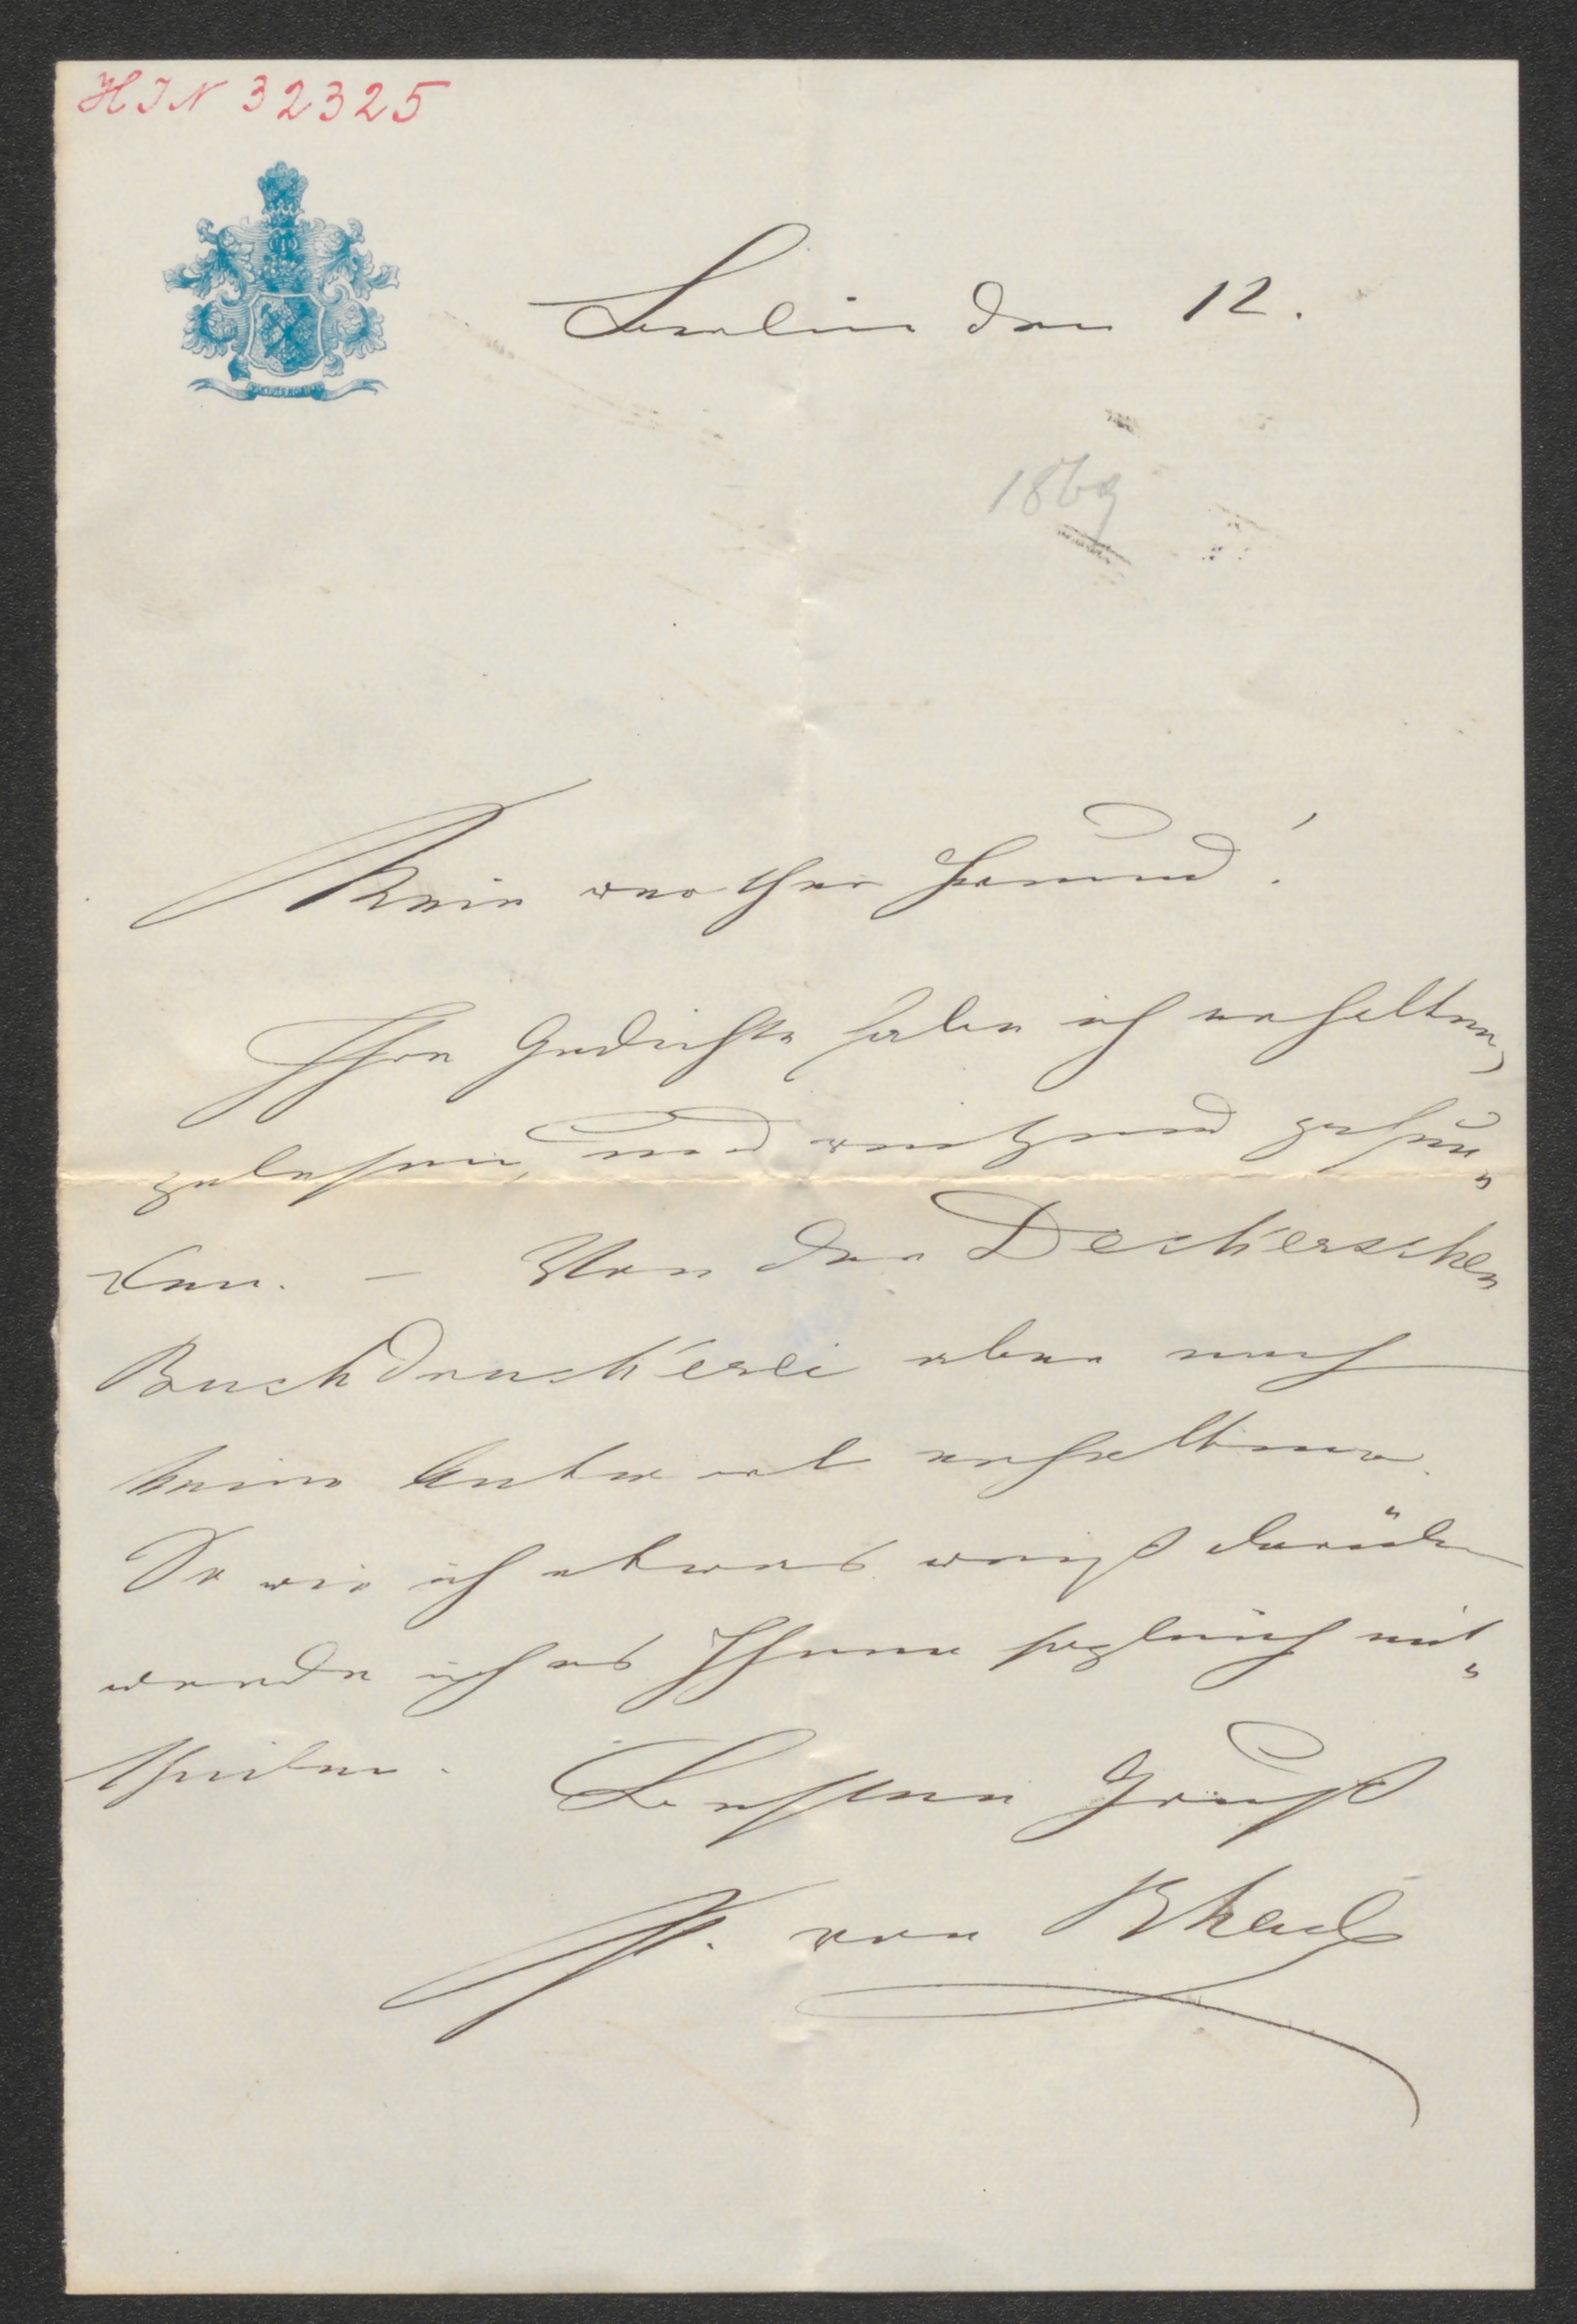 HIN 32325
Berlin den 12.
1869
Mein werther Freund!
Ihre Gedichte habe ich erhalten,
gelesen, und reitzend gefun„
den. – Von der Deckerschen
Buchdruckerei aber noch
keine Antwort erhalten.
So wie ich etwas weiß darüber
werde ich es Ihnen sogleich mit„
theilen. Besten Gruß
von